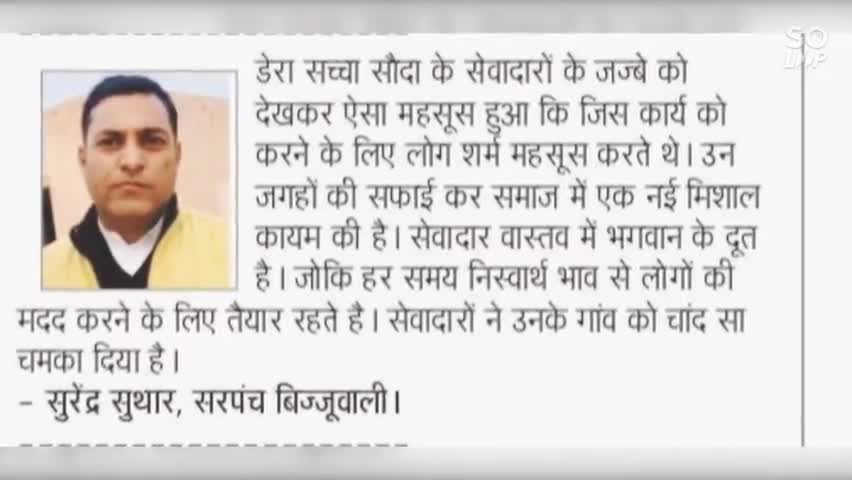 SO
डेरा सच्चा सौदा के सेवादारों के जज्बे को
देखकर ऐसा महसूस हुआ कि जिस कार्य को
करने के लिए लोग शर्म महसूस करते थे। उन
जगहों की सफाई कर समाज में एक नई मिशाल
कायम की है। सेवादार वास्तव में भगवान के दूत
है। जोकि हर समय निस्वार्थ भाव से लोगों की
मदद करने के लिए तैयार रहते है। सेवादारों ने उनके गांव को चांद सा
चमका दिया है।
- सुरेंद्र सुथार, सरपंच बिज्जूवाली।